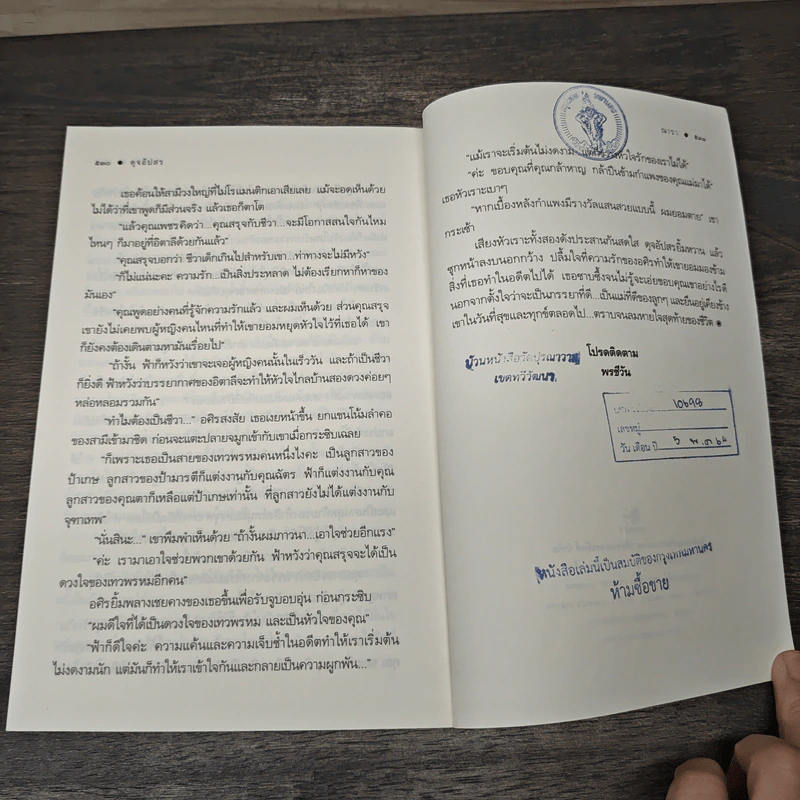 ๕๓๐ ● ดุจอัปสร
เธอค้อนให้สามีวงใหญ่ที่ไม่โรแมนติกเอาเสียเลย แม้จะอดเห็นด้วย
ไม่ได้ว่าที่เขาพูดก็มีส่วนจริง แล้วเธอก็ตาโต
“แล้วคุณเพชรคิดว่า...คุณสรุจกับชีวา...จะมีโอกาสสนใจกันไหม
ไหนๆ ก็มาอยู่ที่อิตาลีด้วยกันแล้ว”
“คุณสรุจบอกว่า ชีวาเด็กเกินไปสำหรับเขา...ท่าทางจะไม่มีหวัง”
“ก็ไม่แน่นะคะ ความรัก...เป็นสิ่งประหลาด ไม่ต้องเรียกหาก็หาของ
มันเอง”
“คุณพูดอย่างคนที่รู้จักความรักแล้ว และผมเห็นด้วย ส่วนคุณสรุจ
เขายังไม่เคยพบผู้หญิงคนไหนที่ทำให้เขายอมหยุดหัวใจไว้ที่เธอได้ เขา
ก็ยังคงต้องเดินตามหามันเรื่อยไป”
“ถ้างั้น ฟ้าก็หวังว่าเขาจะเจอผู้หญิงคนนั้นในเร็ววัน และถ้าเป็นชีวา
ก็ยิ่งดี ฟ้าหวังว่าบรรยากาศของอิตาลีจะทำให้หัวใจไกลบ้านสองดวงค่อยๆ
หล่อหลอมรวมกัน”
“ทำไมต้องเป็นชีวา...” อศิรสงสัย เธอเงยหน้าขึ้น ยกแขนโน้มลำคอ
ของสามีเข้ามาชิด ก่อนจะแตะปลายจมูกเข้ากับเขาเมื่อกระซิบเฉลย
“ก็เพราะเธอเป็นสายของเทวพรหมคนหนึ่งไงคะ เป็นลูกสาวของ
ป้าเกษ ลูกสาวของป้ามารตีก็แต่งงานกับคุณฉัตร ฟ้าก็แต่งงานกับคุณ
ลูกสาวของคุณตาก็เหลือแต่ป้าเกษเท่านั้น ที่ลูกสาวยังไม่ได้แต่งงานกับ
จุฑาเทพ”
“นั่นสินะ...” เขาพึมพำเห็นด้วย “ถ้างั้นผมภาวนา...เอาใจช่วยอีกแรง”
“ค่ะ เรามาเอาใจช่วยพวกเขาด้วยกัน ฟ้าหวังว่าคุณสรุจจะได้เป็น
ดวงใจของเทวพรหมอีกคน”
อศิรยิ้มพลางเชยคางของเธอขึ้นเพื่อรับจูบอบอุ่น ก่อนกระซิบ
“ผมดีใจที่ได้เป็นดวงใจของเทวพรหม และเป็นหัวใจของคุณ”
“ฟ้าก็ดีใจค่ะ ความแค้นและความเจ็บช้ำในอดีตทำให้เราเริ่มต้น
ไม่งดงามนัก แต่มันก็ทำให้เราเข้าใจกันและกลายเป็นความผูกพัน...”
ณารา ● ๕๓๑
“แม้เราจะเริ่มต้นไม่งดงาม แต่ หัวใจรักของเราไม่ได้”
“ค่ะ ขอบคุณที่คุณกล้าหาญ กล้าปีนข้ามกำแพงของคุณแม่มาได้”
เธอหัวเราะเบาๆ
“หากเบื้องหลังกำแพงมีรางวัลแสนสวยแบบนี้ ผมยอมตาย” เขา
กระเซ้า
เสียงหัวเราะทั้งสองดังประสานกันสดใส ดุจอัปสรยิ้มหวาน แล้ว
ซุกหน้าลงบนอกกว้าง ปลื้มใจที่ความรักของอศิรทำให้เขายอมมองข้าม
สิ่งที่เธอทำในอดีตไปได้ เธอซาบซึ้งจนไม่รู้จะเอ่ยขอบคุณเขาอย่างไรดี
นอกจากตั้งใจว่าจะเป็นภรรยาที่ดี...เป็นแม่ที่ดีของลูกๆ และยืนอยู่เคียงข้าง
เขาในวันที่สุขและทุกข์ตลอดไป...ตราบจนลมหายใจสุดท้ายของชีวิต
โปรดติดตาม
พรชีวัน
บ้านหนังสือวัดปุรณาวาส
เขตทวีวัฒนา
10698
เลขหมู่
วัน เดือน ปี 5 พ.ค 64
หนังสือเล่มนี้เป็นสมบัติของกรุงเทพมหานคร
ห้ามซื้อขาย